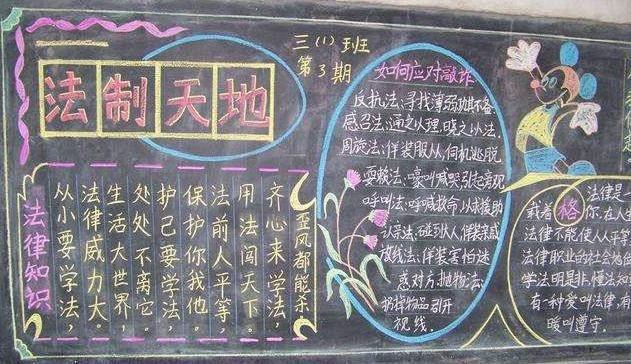 三(1)班
第3期
法制天地
法律知识
从小要学法，
法律威力大。
生活大世界，
处处不离它。
护己要学法，
保护你我他。
法前人平等，
用法闯天下。
齐心来学法，
歪风都能杀
如何应对敲诈
反抗法：寻找薄弱攻其不备
感召法：通之以理，晓之以法.
周旋法：佯装服从伺机逃脱
耍赖法：嚎叫喊哭引起旁观
呼叫法：呼喊救命以求援助
认亲法：碰到大人佯装亲戚
放线法：佯装害怕迷
惑对方 抛物法：
扔掉物品引开
视线.
法律是一
载着 格 你，在人生
法律不能使人人平等
法律职业的社会地位
学法明是非，懂法知
有一种爱叫法律，有
暖叫遵守.